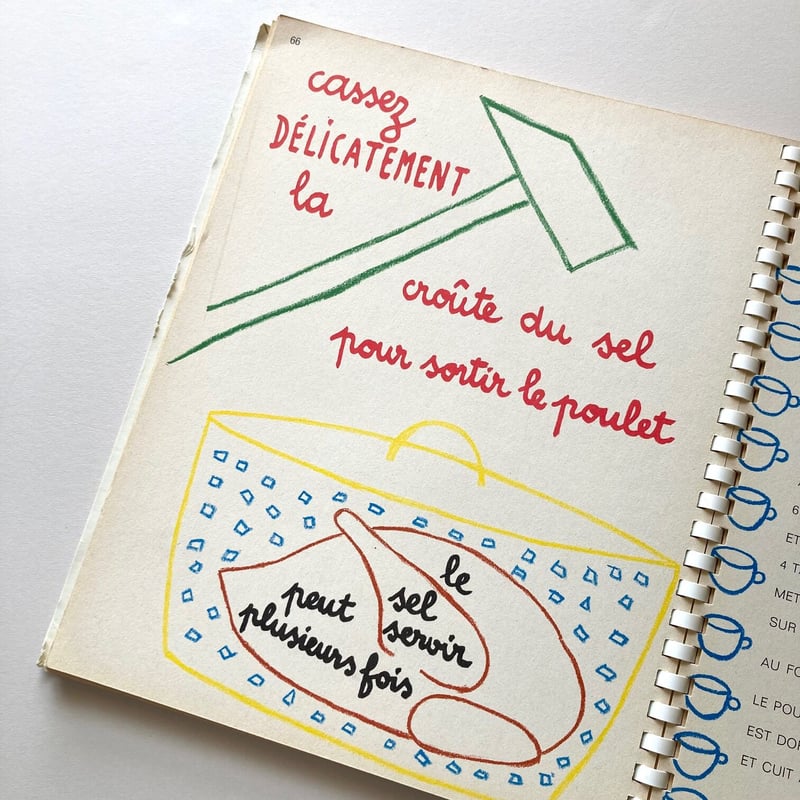 66
cassez
DÉLICATEMENT
la
croûte du sel
pour sortir le poulet
le
sel
peut servir
plusieurs fois
6
ET
4 T
MET
SUR
AU FO
LE POU
EST DOR
ET CUIT